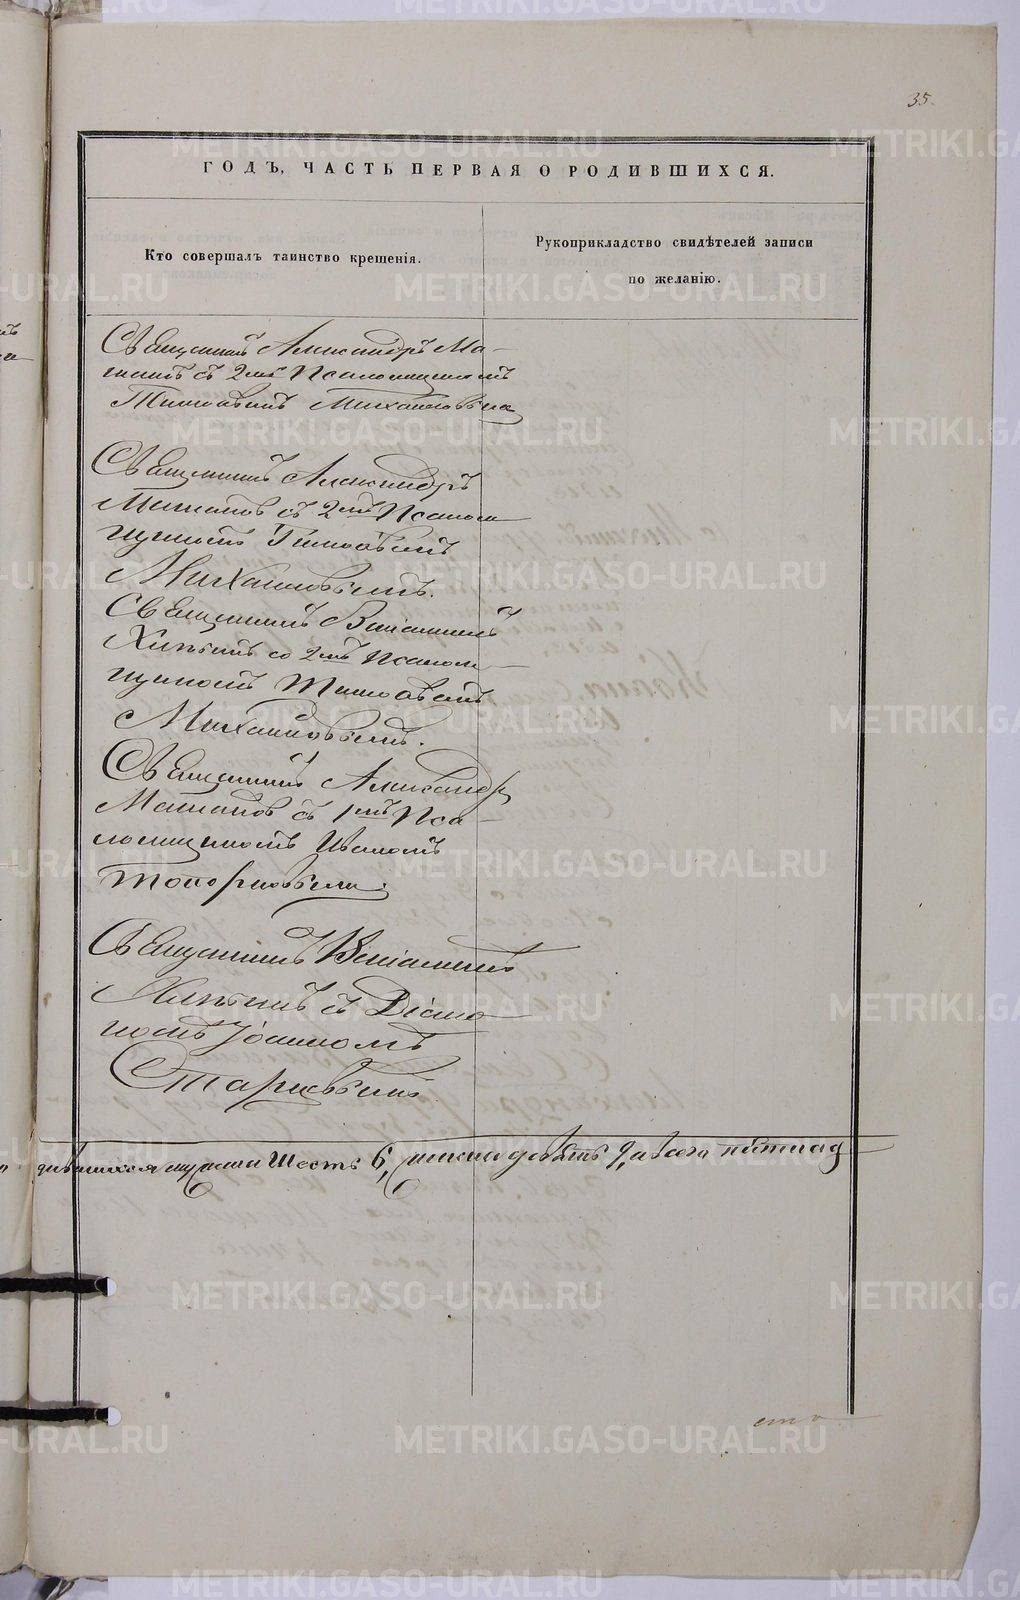 35.
ГОДЪ, ЧАСТЬ ПЕРВАЯ О РОДИВШИХСЯ.
Кто совершалъ таинство крещенія.
Рукоприкладство свидѣтелей записи
по желанію.
Священникъ Александръ Ма-
с 2мъ Псаломщикомъ
Тимофеемъ
Священникъ Александръ
съ 2мъ Псалом
щикомъ Тимофеемъ
Михайловскимъ.
Священникъ Веніаминъ
Хлынинъ со 2мъ Псалом
щикомъ Тимофеемъ
Михайловскимъ.
Священникъ Александръ
съ 1мъ Пса-
ломщикомъ Иваномъ
Топорковымъ.
Священникъ Веніаминъ
съ Діако
номъ Іоанномъ
дившихся мужска Шесть 6, женска девять 9, а всего пятнад
METRIKI.GASO-URAL.RU